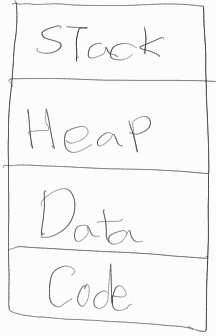 STack
Heap
Data
Code